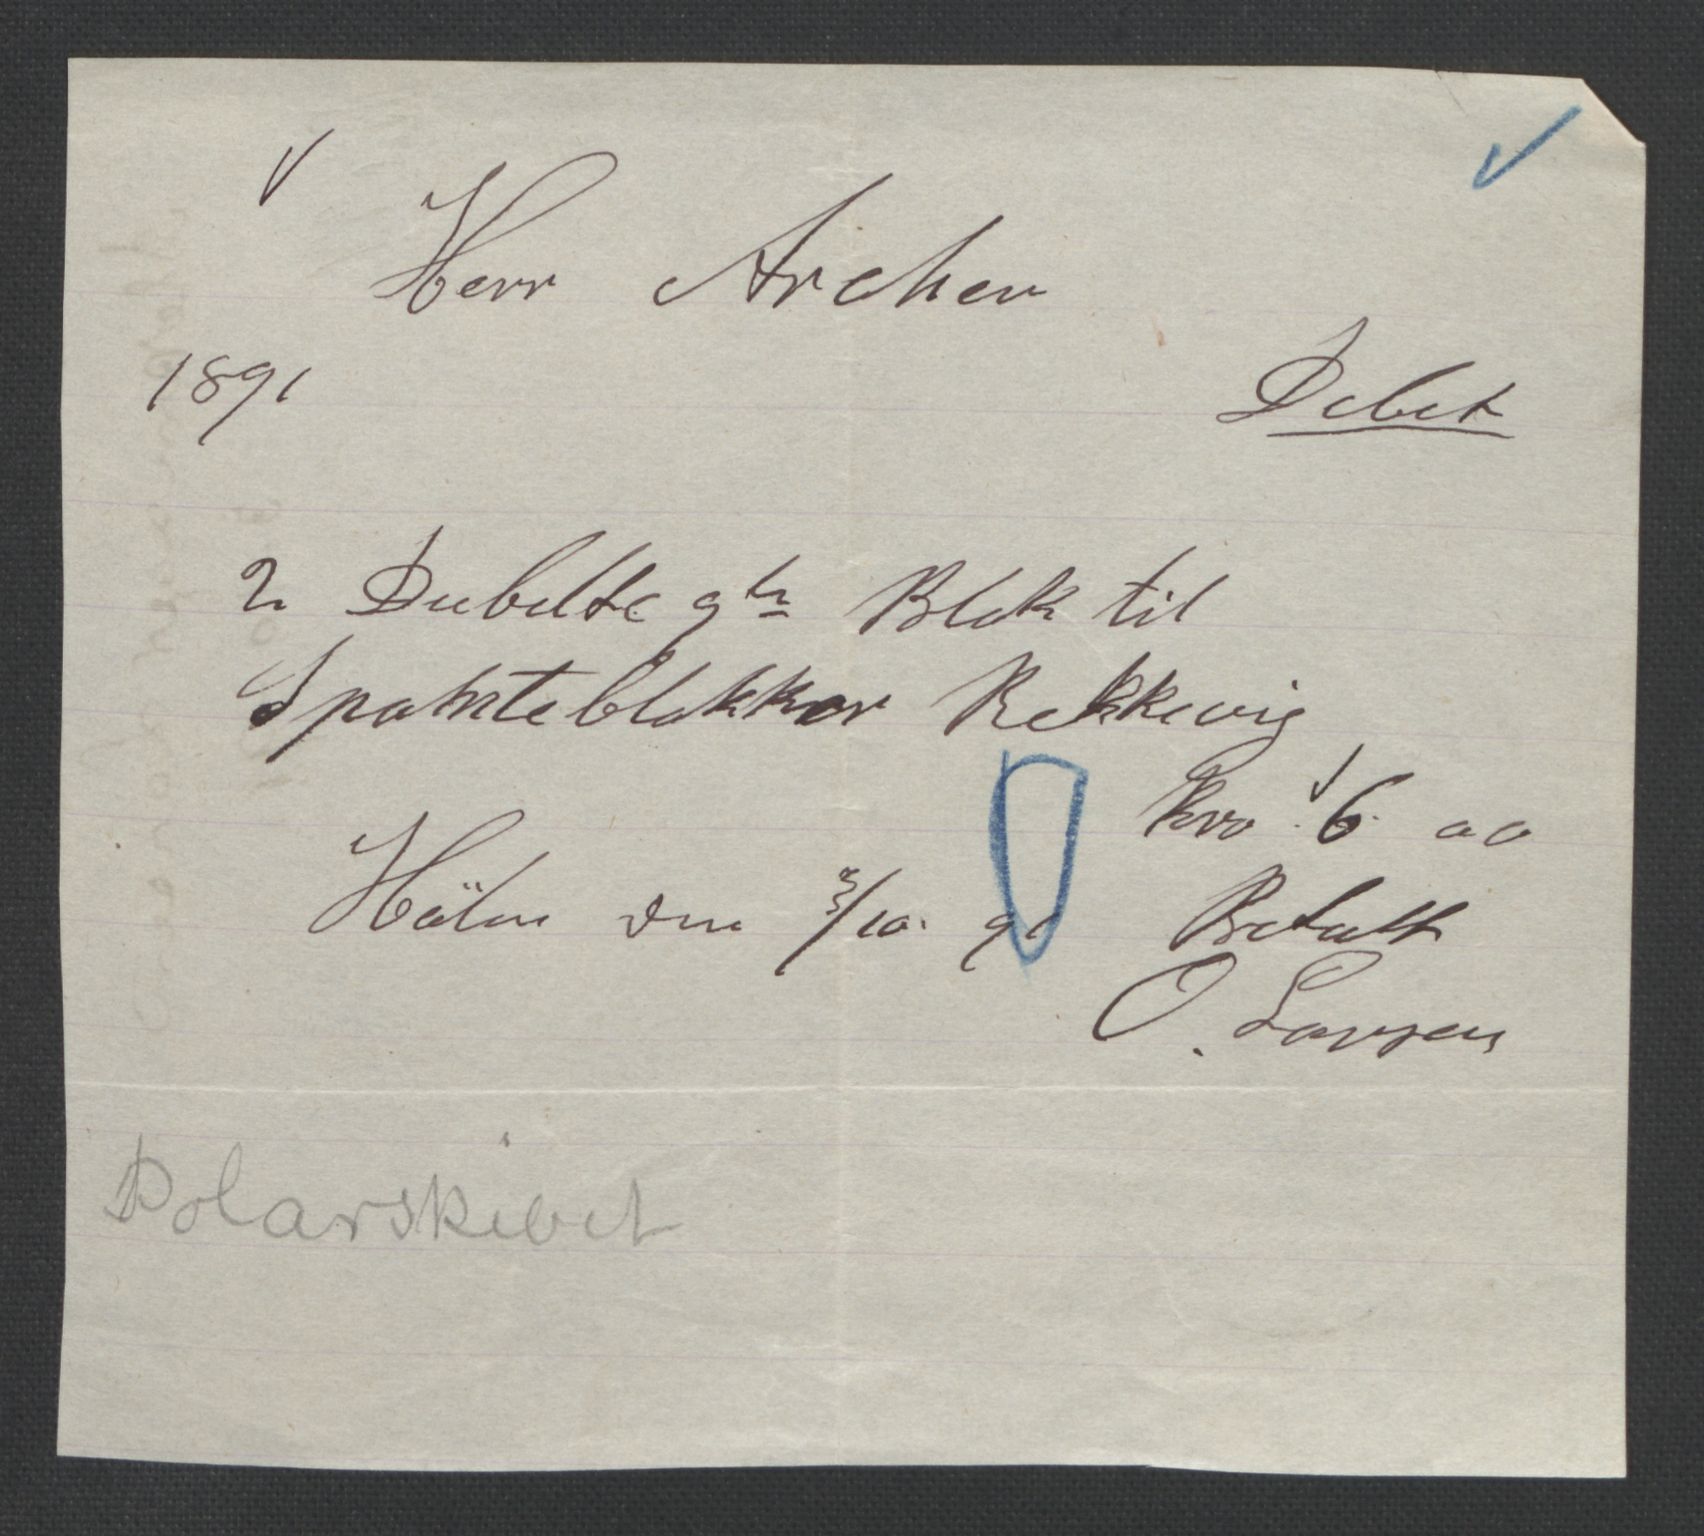 Herr Archer
1891
Debet
2 Dubelte 9 tn Blok til
Spanteblokker Rekkevig
Kro 6 00
den 3/10. 91 Betalt
O. Larsen
Polarskibet